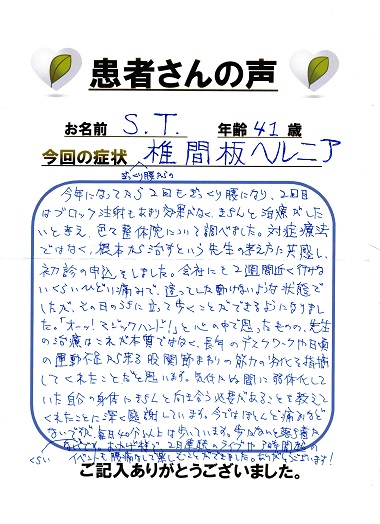 患者さんの声
お名前 S.T. 年齢 41 歳
今回の症状 椎間板ヘルニア
ぎっくり腰からの
今年になってから2回もぎっくり腰になり、2回目
はブロック注射もあまり効果がなく、きちんと治療がした
いと考え、色々整体院について調べました。対症療法
ではなく、根本から治すという先生の考え方に共感し、
初診の申込をしました。会社にも2週間近く行けな
いくらいひどい痛みで、座ってしか動けないような状態で
したが、その日のうちに立って歩くことができるようになりまし
た。「オーッ!マジックハンド!」と心の中で思ったものの、先生
の治療はこれが本質ではなく、長年のデスクワークや日頃
の運動不足から来る股関節まわりの筋力の劣化を指摘
してくれたことだと思います。気付かぬ間に弱体化して
いた自分の身体ときちんと向き合う必要があることを教えて
くれたことに深く感謝しています。今ではほんと痛みなど
ないですが、毎日40分以上は歩いています。歩かないと落ち着か
ないくらいです。おかげ様で2日連続のライブや7時間超の
イベントも腰痛なしで楽しむことができました。ありがとうございます!
ご記入ありがとうございました。